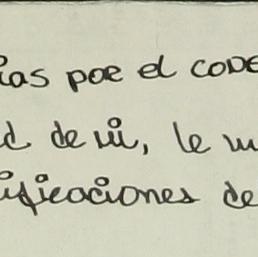 ias por el cone
d de mi, le m
ificaciones de